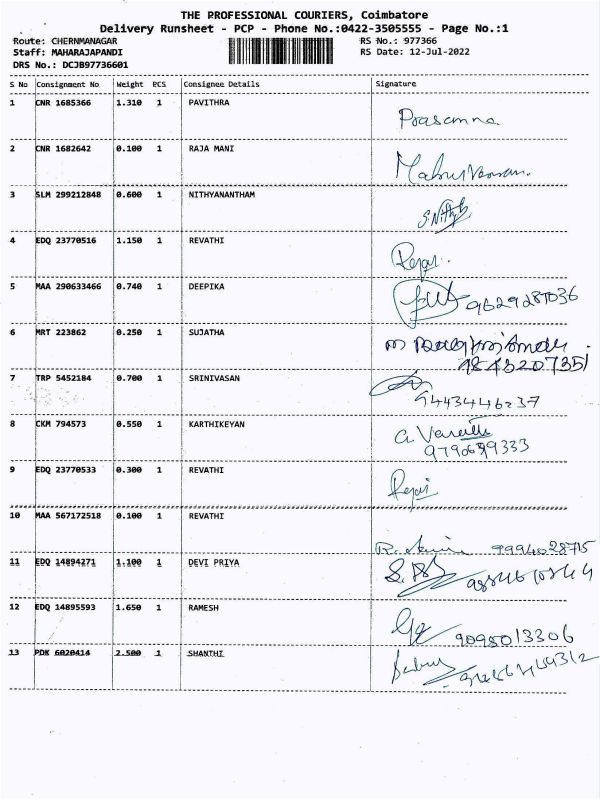 THE PROFESSIONAL COURIERS, Coimbatore
Delivery Runsheet - PCP - Phone No.:0422-3505555 - Page No.:1
Route: CHERNMANAGAR RS No.: 977366
Staff: MAHARAJAPANDI RS Date: 12-Jul-2022
DRS No.: DCJB97736601
S No Consignment No Weight PCS Consignee Details Signature
1 CNR 1685366 1.310 1 PAVITHRA Prasanna
2 CNR 1682642 0.100 1 RAJA MANI
3 SLM 299212848 0.600 1 NITHYANANTHAM
4 EDQ 23770516 1.150 1 REVATHI
5 MAA 290633466 0.740 1 DEEPIKA 9629287036
6 MRT 223862 0.250 1 SUJATHA
7 TRP 5452184 0.700 1 SRINIVASAN
9443446237
8 CKM 794573 0.550 1 KARTHIKEYAN
9 EDQ 23770533 0.300 1 REVATHI
10 MAA 567172518 0.100 1 REVATHI
9994028715
11 EDQ 14894271 1.100 1 DEVI PRIYA
12 EDQ 14895593 1.650 1 RAMESH
9095013306
13 PDK 6020414 2.500 1 SHANTHI